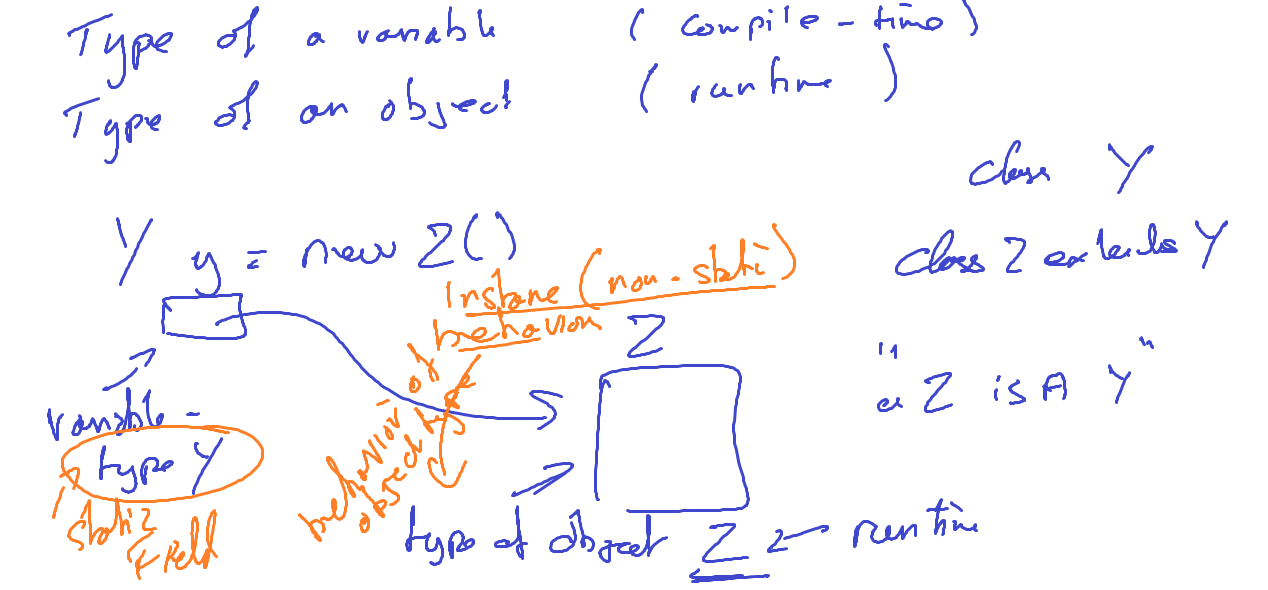 Type of a variable (compile-time)
Type of an object (runtime)
class Y
Y y = new Z()
class Z extends Y
Instane (non-static)
behavior
Z
"a Z is A Y"
variable -
type Y
static
Field
behavior of
object type
type of object Z runtime